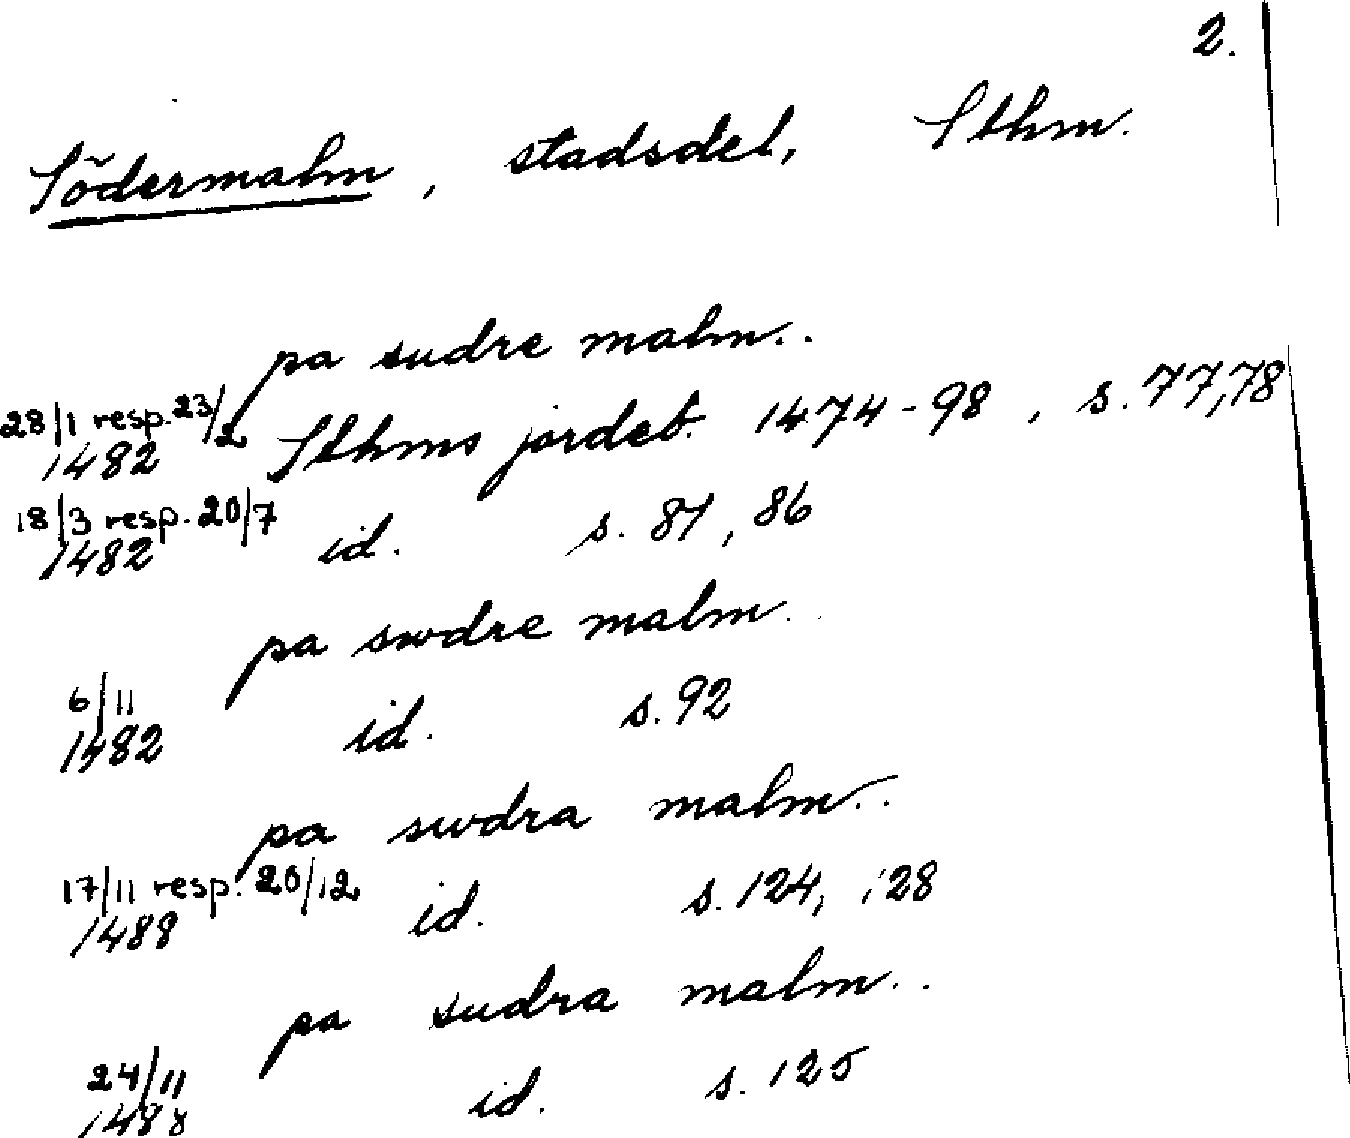 2.
Södermalm, stadsdel, Sthm.
pa sudre malm..
28/1 resp. 23/2 1482 Sthms jordeb. 1474-98, s. 77, 78
18/3 resp. 20/7 1482 id. s. 81, 86
pa swdre malm..
6/11 1482 id. s. 92
pa swdra malm..
17/11 resp. 20/12 1488 id. s. 124, 128
pa sudra malm..
24/11 1488 id. s. 125